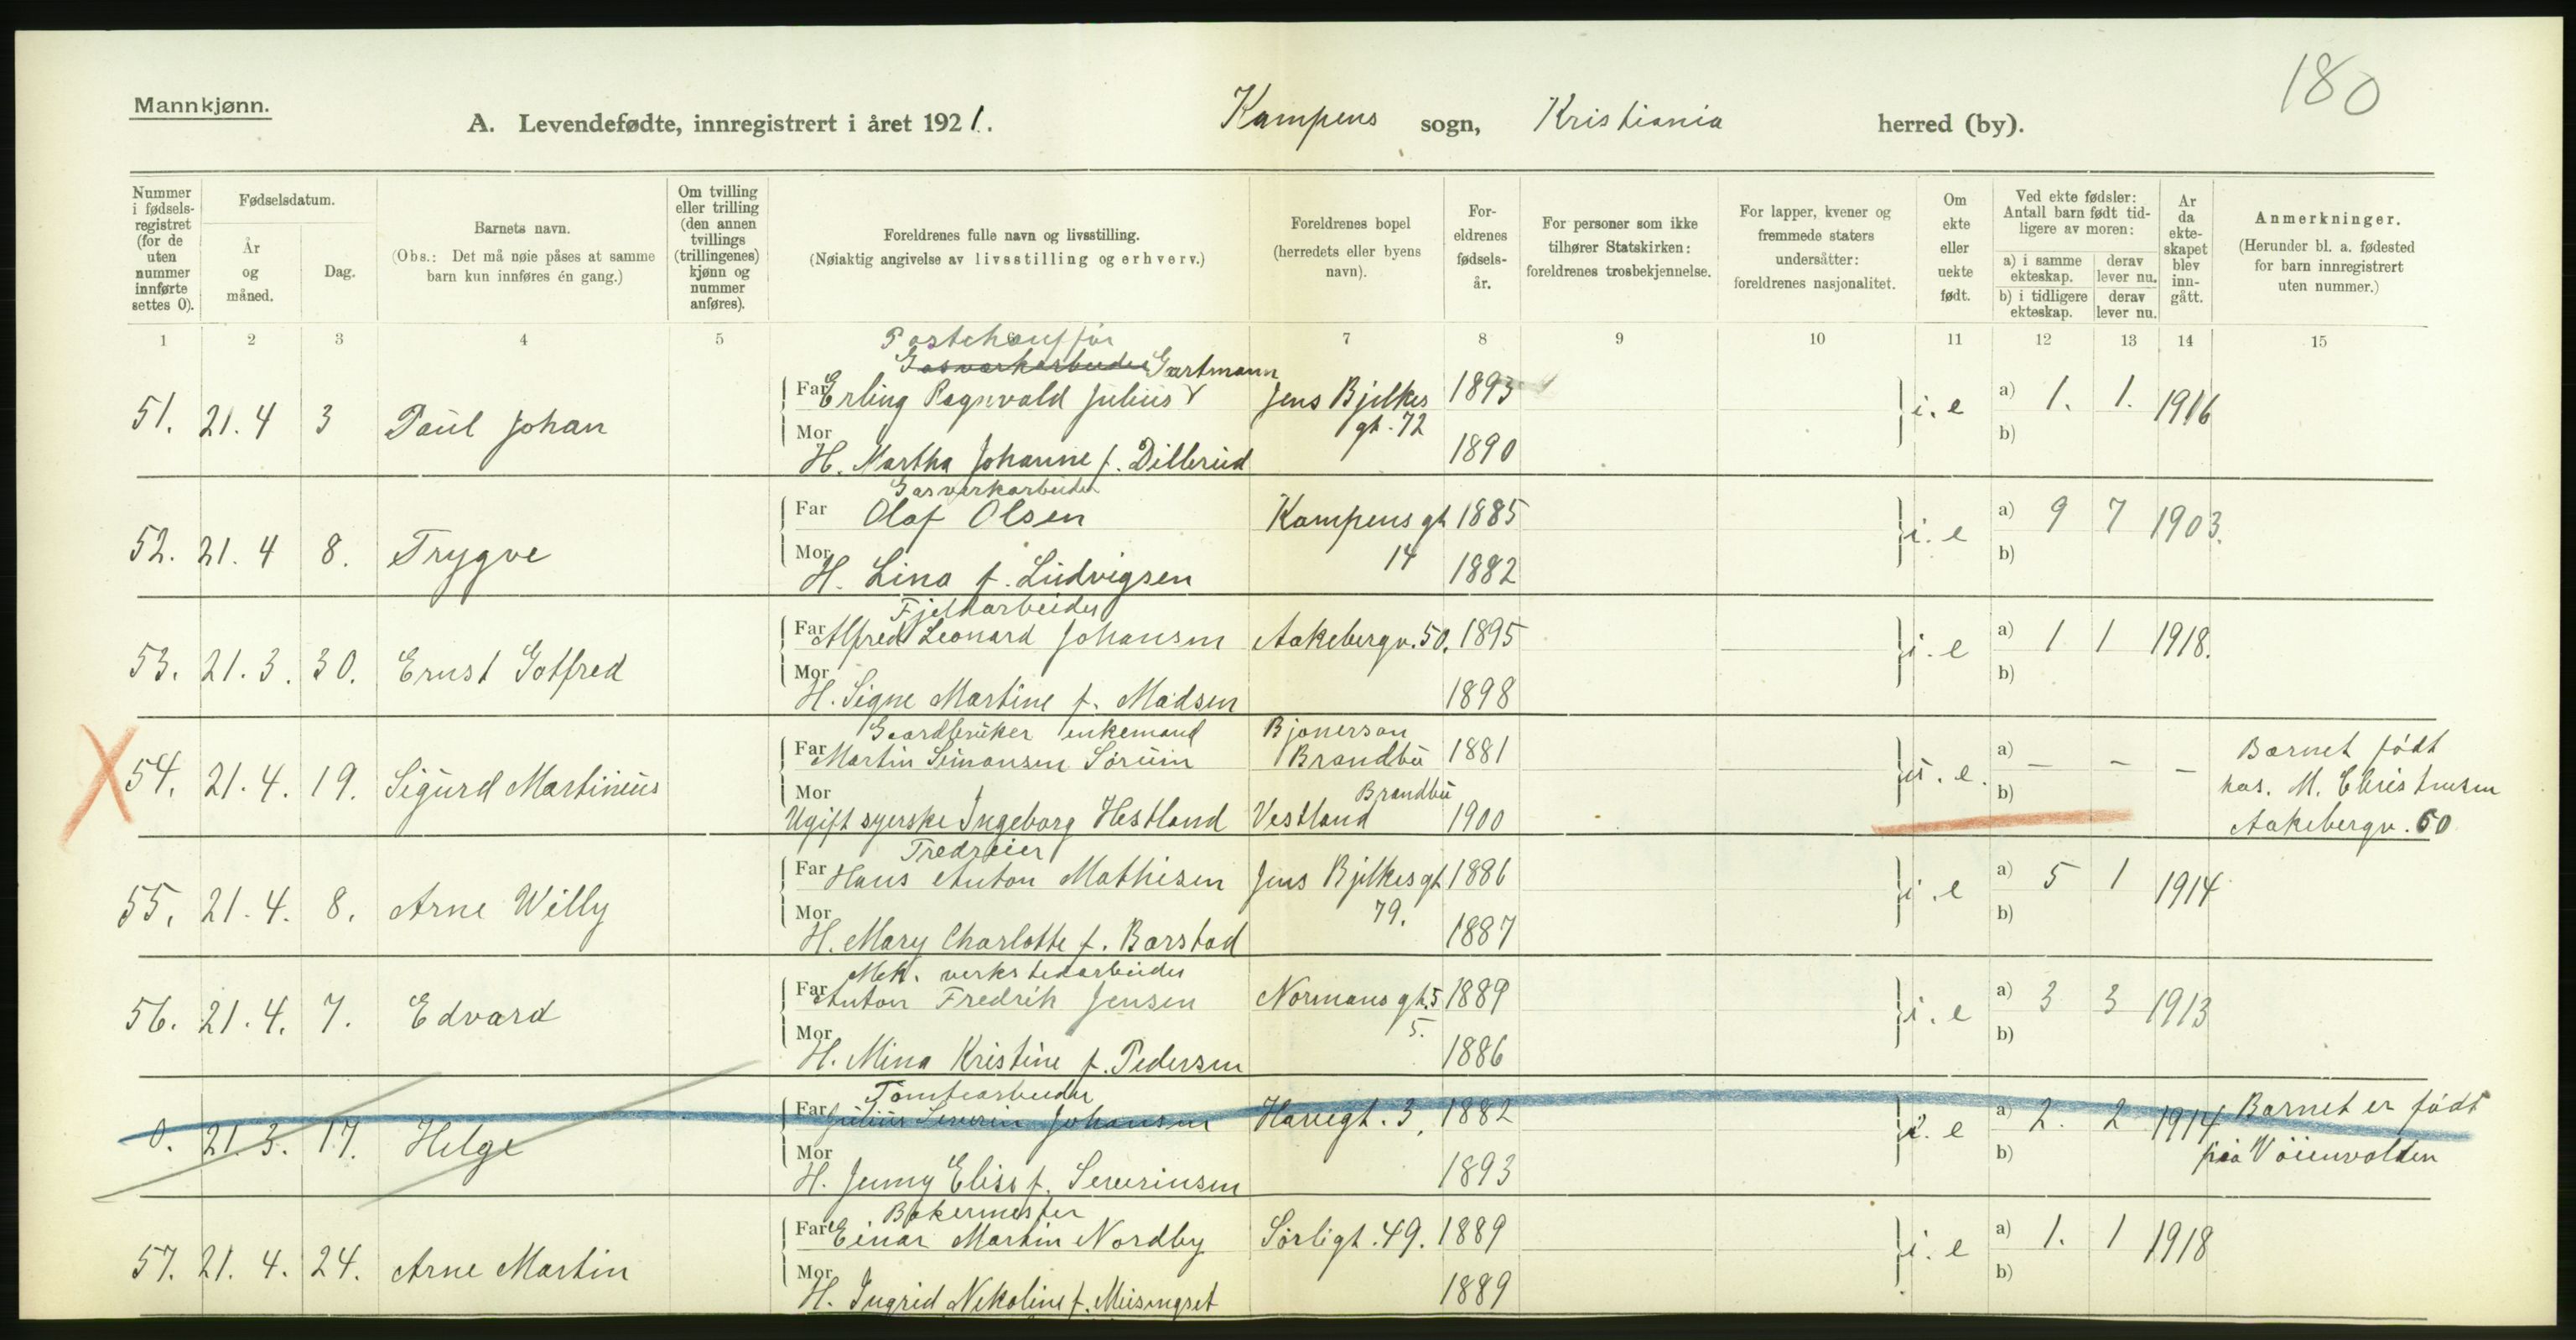 180
Mannkjønn.
A. Levendefødte, innregistrert i året 1921. Kampens sogn, Kristiania herred (by).
Nummer i fødselsregistret (for de uten nummer innførte settes 0).
Fødselsdatum.
År og måned.
Dag.
Barnets navn.
(Obs.: Det må nøie påses at samme barn kun innføres én gang.)
Om tvilling eller trilling (den annen tvillings (trillingenes) kjønn og nummer anføres).
Foreldrenes fulle navn og livsstilling.
(Nøiaktig angivelse av livsstilling og erhverv.)
Foreldrenes bopel (herredets eller byens navn).
Foreldrenes fødselsår.
For personer som ikke tilhører Statskirken: foreldrenes trosbekjennelse.
For lapper, kvener og fremmede staters undersåtter: foreldrenes nasjonalitet.
Om ekte eller uekte født.
Ved ekte fødsler: Antall barn født tidligere av moren:
a) i samme ekteskap. derav lever nu.
b) i tidligere ekteskap. derav lever nu.
Ar da ekteskapet blev inngått.
Anmerkninger.
(Herunder bl. a. fødested for barn innregistrert uten nummer.)
1 2 3 4 5 6 7 8 9 10 11 12 13 14 15
Postchauffør
Gasverkarbeider Gartmann
51. 21. 4 3 Paul Johan Far Erling Ragnvald Julius Jens Bjelkes 1893 i. e a) 1. 1. 1916
gt. 72 b)
Mor H. Martha Johanne f. Dillerud 1890
Gasverkarbeider
52. 21. 4 8. Trygve Far Olaf Olsen Kampens gt 1885 i. e a) 9 7 1903.
14 b)
Mor H. Lina f. Ludvigsen 1882
Fjeldarbeider
53. 21. 3. 30. Ernst Gotfred Far Alfred Leonard Johansen Aakebergv. 50. 1895 i. e a) 1 1 1918.
b)
Mor H. Signe Martine f. Madsen 1898
Gaardbruker enkemand Bjonerson
54. 21. 4. 19. Sigurd Martinius Far Martin Simonsen Sørum Brandbu 1881 u. e. a) – – – Barnet født
b) hos. M. Christensen
Mor Ugift syerske Ingeborg Hestland Vestland Brandbu 1900 Aakebergv. 60
Tredreier
55. 21. 4. 8. Arne Willy Far Hans Anton Mathisen Jens Bjelkes gt 1886 i. e a) 5 1 1914
79. b)
Mor H. Mary Charlotte f. Barstad 1887
Mek. verkstedarbeider
56. 21. 4. 7. Edvard Far Anton Fredrik Jensen Normans gt. 5 1889 i. e a) 3 3 1913
5. b)
Mor H. Mina Kristine f. Pedersen 1886
Tomtearbeider
0. 21. 3. 17. Helge Far Julius Severin Johansen Havegt. 3. 1882 i. e a) 2. 2 1914 Barnet er født
b) paa Vöienvolden
Mor H. Jenny Elise f. Severinsen 1893
Bakermester
57. 21. 4. 24. Arne Martin Far Einar Martin Nordby Sørligt. 49. 1889 i. e a) 1. 1 1918
b)
Mor H. Ingrid Nikoline f. Meisingset 1889